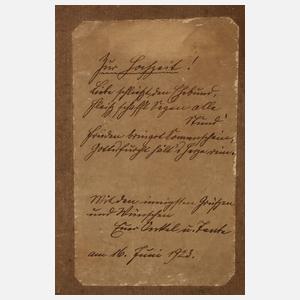 Zur Hochzeit!
Liebe schließt den Ehebund,
Fleiß schafft Segen alle
Stund'
Frieden bringet Sonnenschein,
Gottesfurcht hält's Herze rein.
Mit den innigsten Grüßen
und Wünschen
Euer Onkel u. Tante
am 16. Juni 1923.